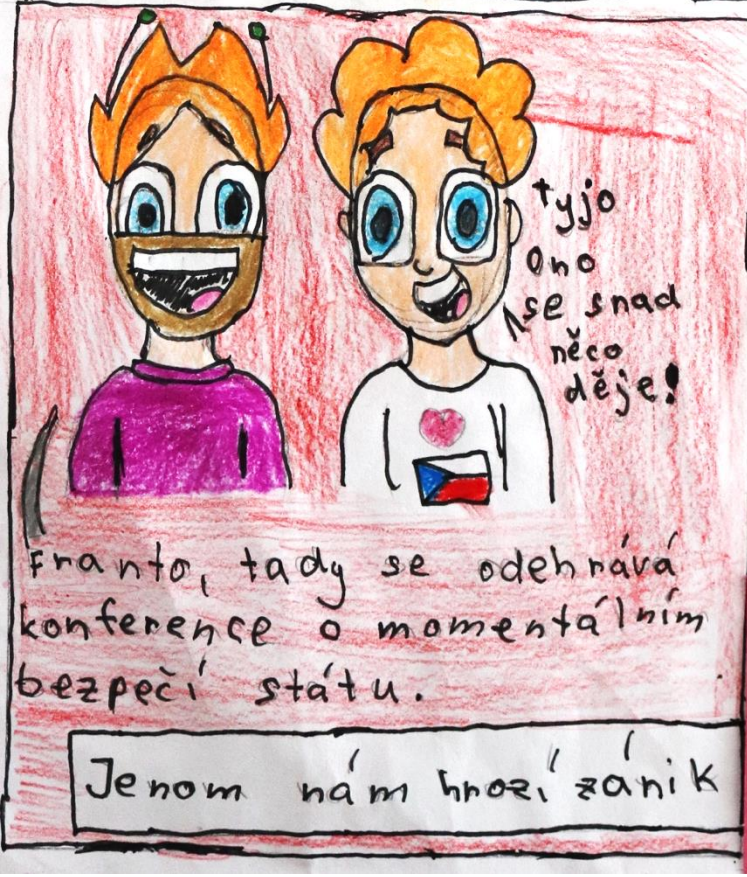 tyjo
ono
se snad
něco
děje!
Franto, tady se odehrává
konference o momentálním
bezpečí státu.
Jenom nám hrozí zánik